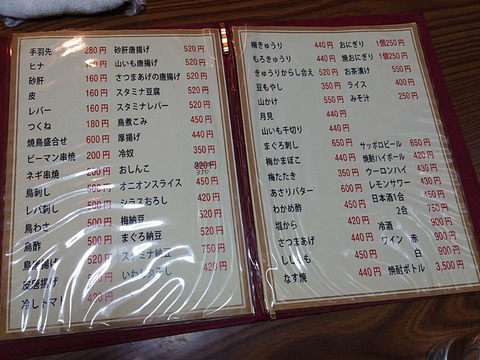 手羽先 280円
ヒナ 160円
砂肝 160円
皮 160円
レバー 160円
つくね 180円
焼鳥盛合せ 600円
ピーマン串焼 200円
ネギ串焼 200円
鳥刺し
レバ刺し 500円
鳥わさ 500円
鳥酢 500円
冷しトマト 420円
砂肝唐揚げ 520円
山いも唐揚げ 520円
さつまあげの唐揚げ 520円
スタミナ豆腐 520円
スタミナレバー 520円
鳥煮こみ 450円
厚揚げ 440円
冷奴 350円
おしんこ 350
オニオンスライス 450円
シラスおろし 420円
梅納豆 520円
まぐろ納豆 520円
スタミナ納豆 750円
420円
梅きゅうり 440円
もろきゅうり 440円
きゅうりからし合え 520円
豆もやし 350円
山かけ 550円
月見 440円
山いも千切り 440円
まぐろ刺し 650円
梅かまぼこ 440円
梅たたき 350円
あさりバター 600円
わかめ酢 450円
塩から 420円
さつまあげ 440円
ししゃも 450円
なす焼 440円
おにぎり 1個250円
焼おにぎり 1個250円
お茶漬け 550円
ライス 400円
みそ汁 250円
サッポロビール 650円
焼酎ハイボール 420円
ウーロンハイ 430円
レモンサワー 430円
日本酒1合 450円
2合 750円
冷酒 900円
ワイン 赤 900円
白 900円
焼酎ボトル 3,500円